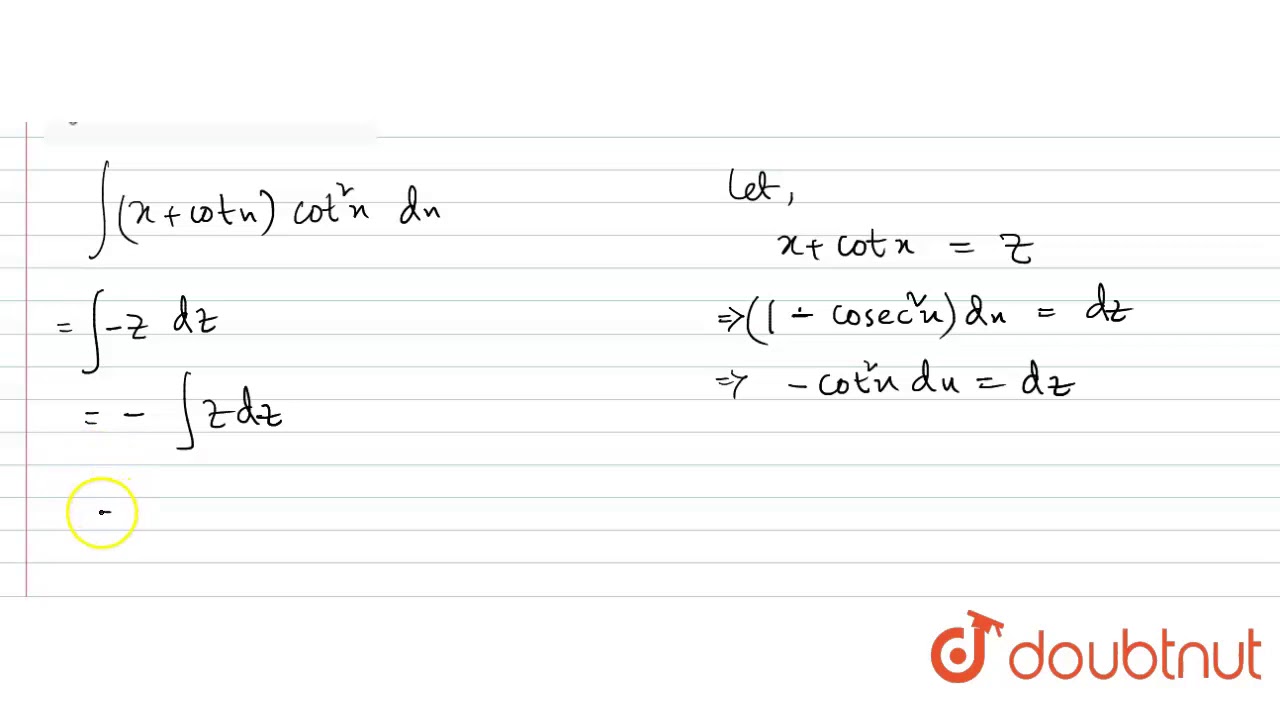 ∫(x+cotx) cot²x dx
= ∫-z dz
= - ∫z dz
Let,
x+ cotx = z
⇒(1 - cosec²x) dx = dz
⇒ -cot²x dx = dz
doubtnut